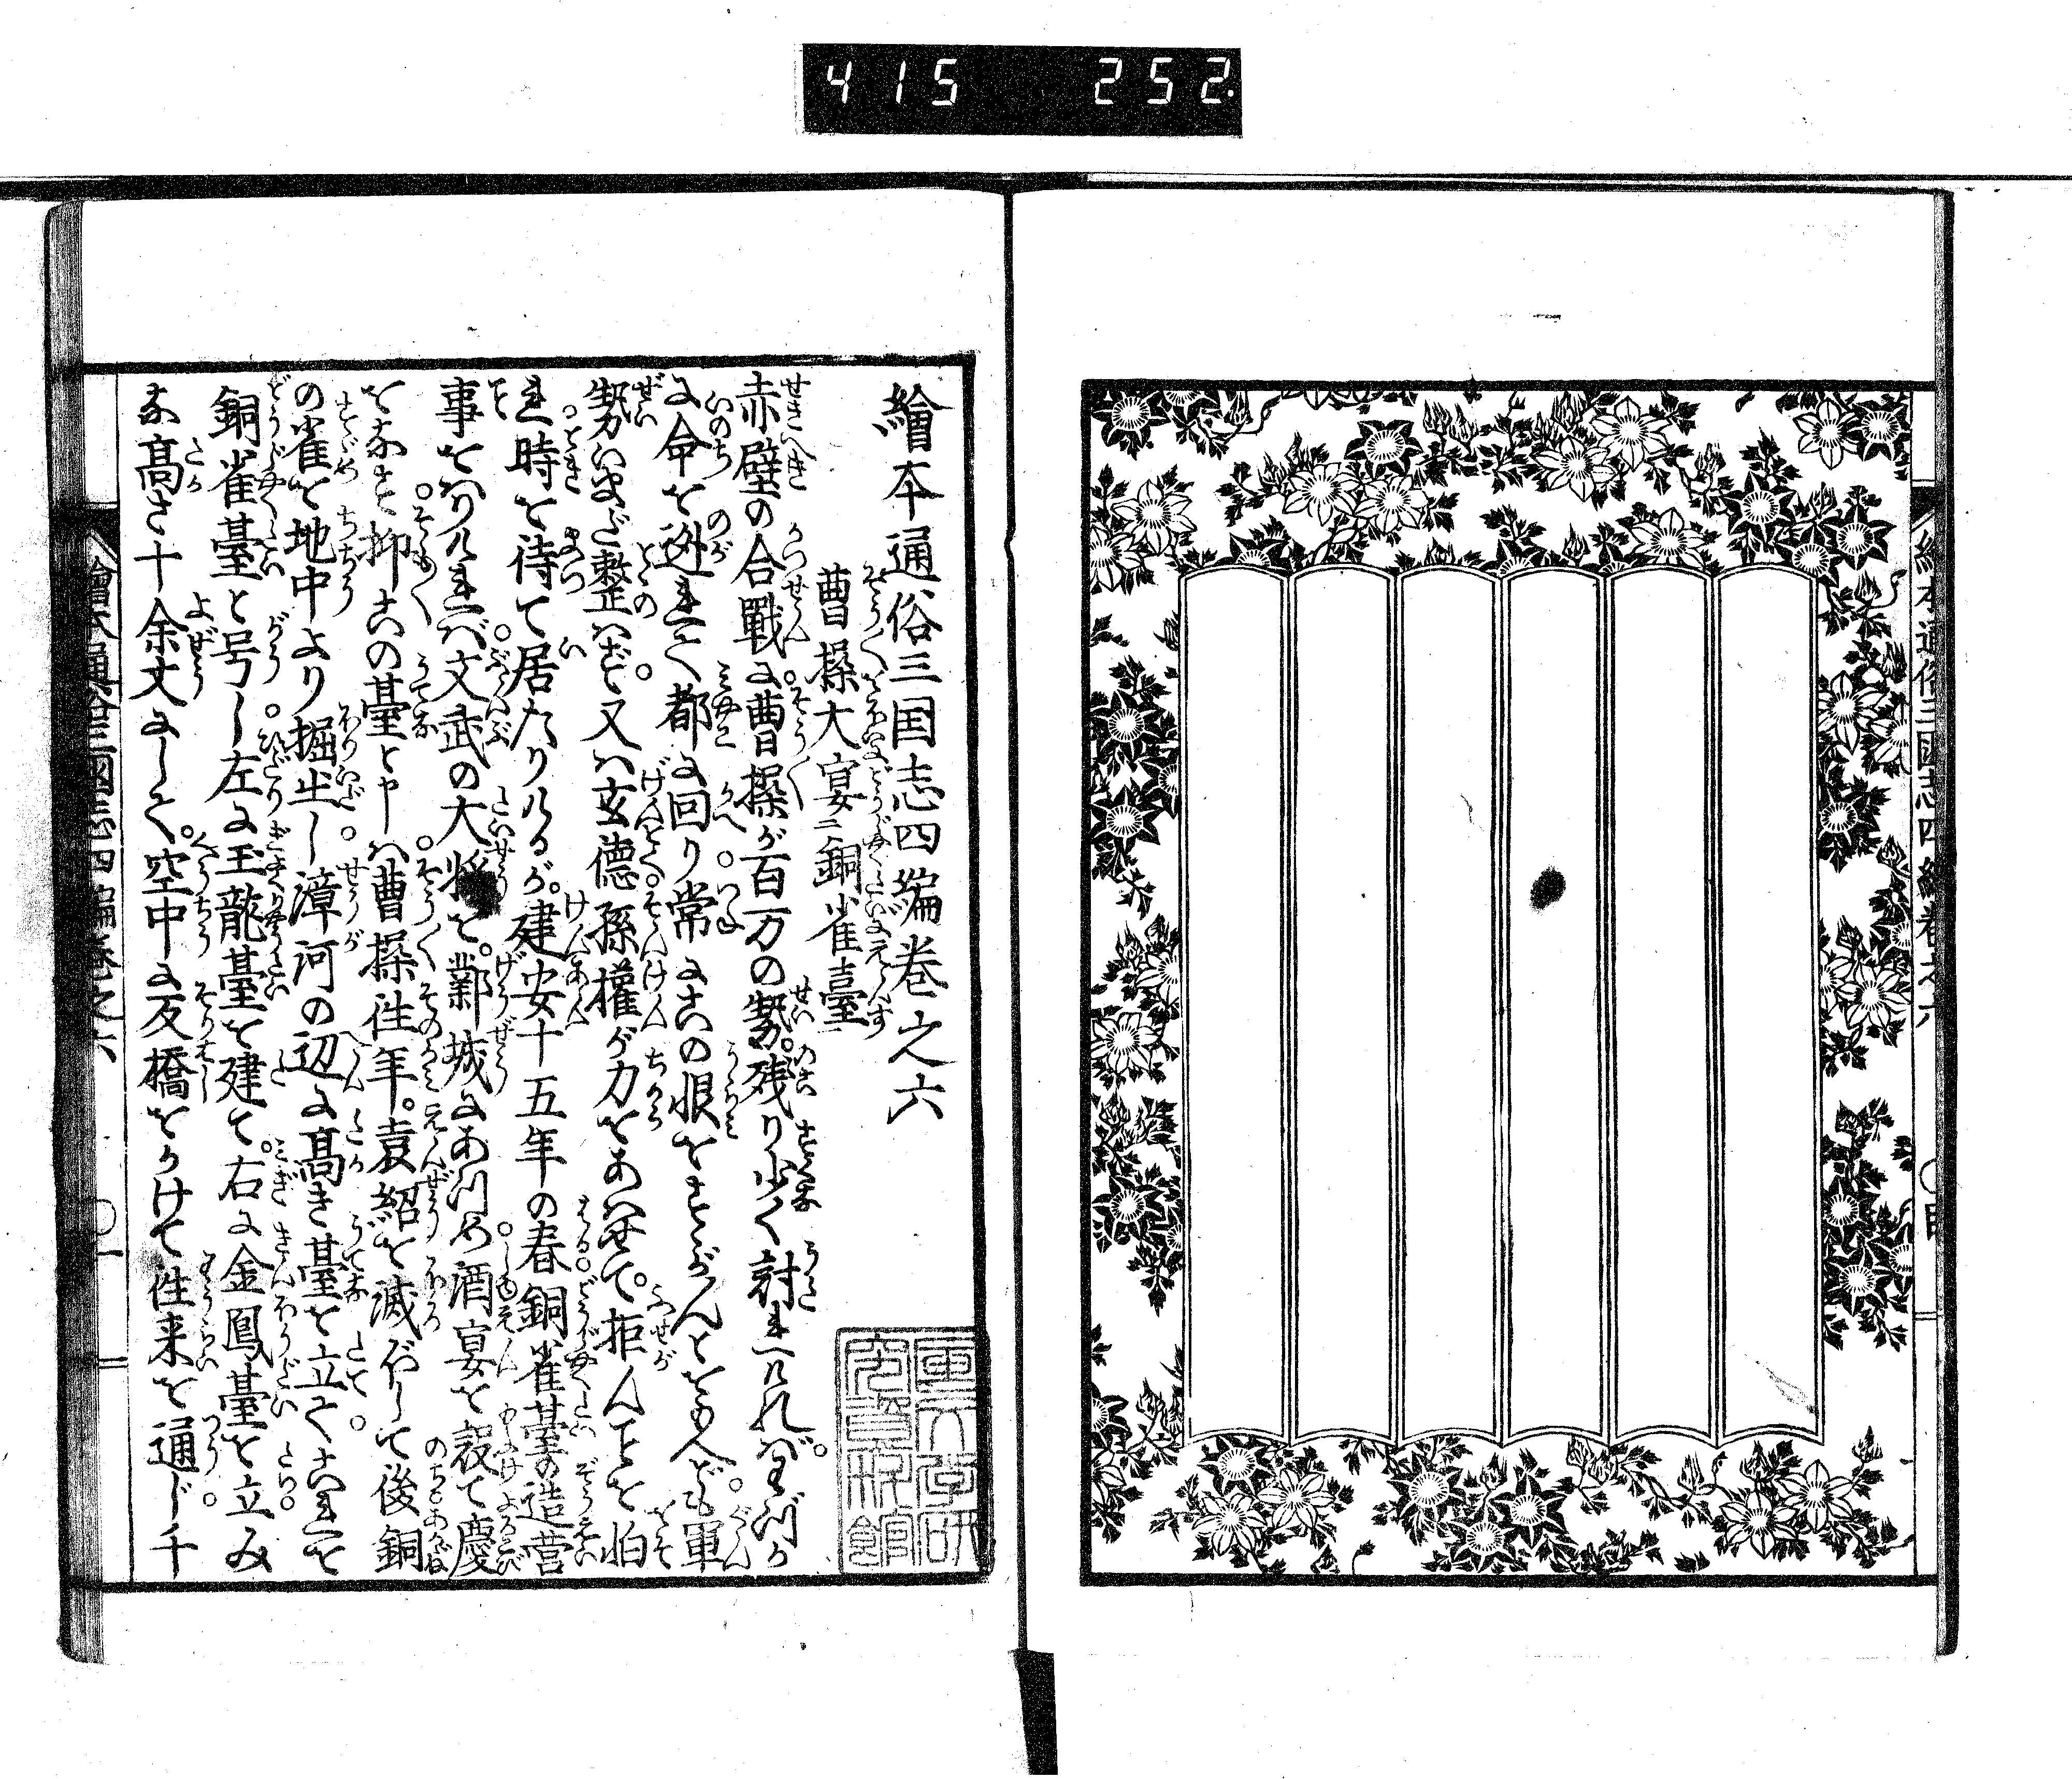 415 252.
繪本通俗三國志四編巻之六
繪本通俗三国志四編巻之六
曹操大宴ニ銅雀臺一
赤壁の合戰に曹操が百万の勢残り少く討れければわづか
に命を迯れて都に回り常に此の恨をすゝがんとをもへども軍
勢いまだ整はず又は玄德孫權が力をあはせて拒んことを怕
れ時を待て居たりけるが建安十五年の春銅雀臺の造営
事をはりければ文武の大将を鄴城にあつめ酒宴を設て慶
をなす抑此の臺と申は曹操往年袁紹を滅ぼして後銅
の雀を地中より掘出し漳河の辺に高き臺を立てこれを
銅雀臺と号し左に玉龍臺を建て右に金鳳臺を立み
な高さ十余丈にして空中に反橋をかけて往来を通じ千
繪本通俗三國志四編巻之六
〇一